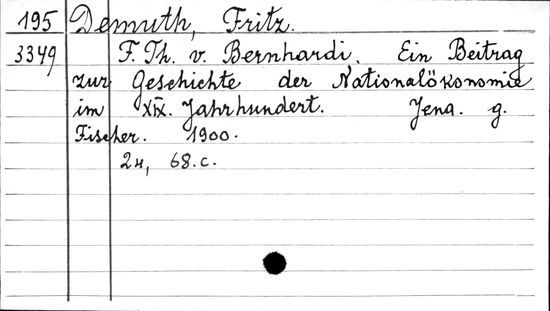 195 Demuth, Fritz.
3349 F. Th. v. Bernhardi. Ein Beitrag
zur Geschichte der Nationalökonomie
im XIX. Jahrhundert. Jena. G.
Fischer. 1900.
2н, 68.c.